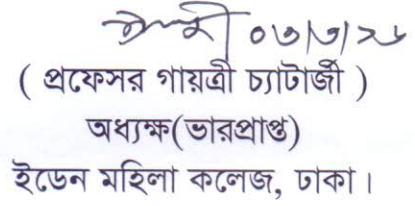 ০৩/৩/২৬
( প্রফেসর গায়ত্রী চ্যাটার্জী )
অধ্যক্ষ(ভারপ্রাপ্ত)
ইডেন মহিলা কলেজ, ঢাকা।